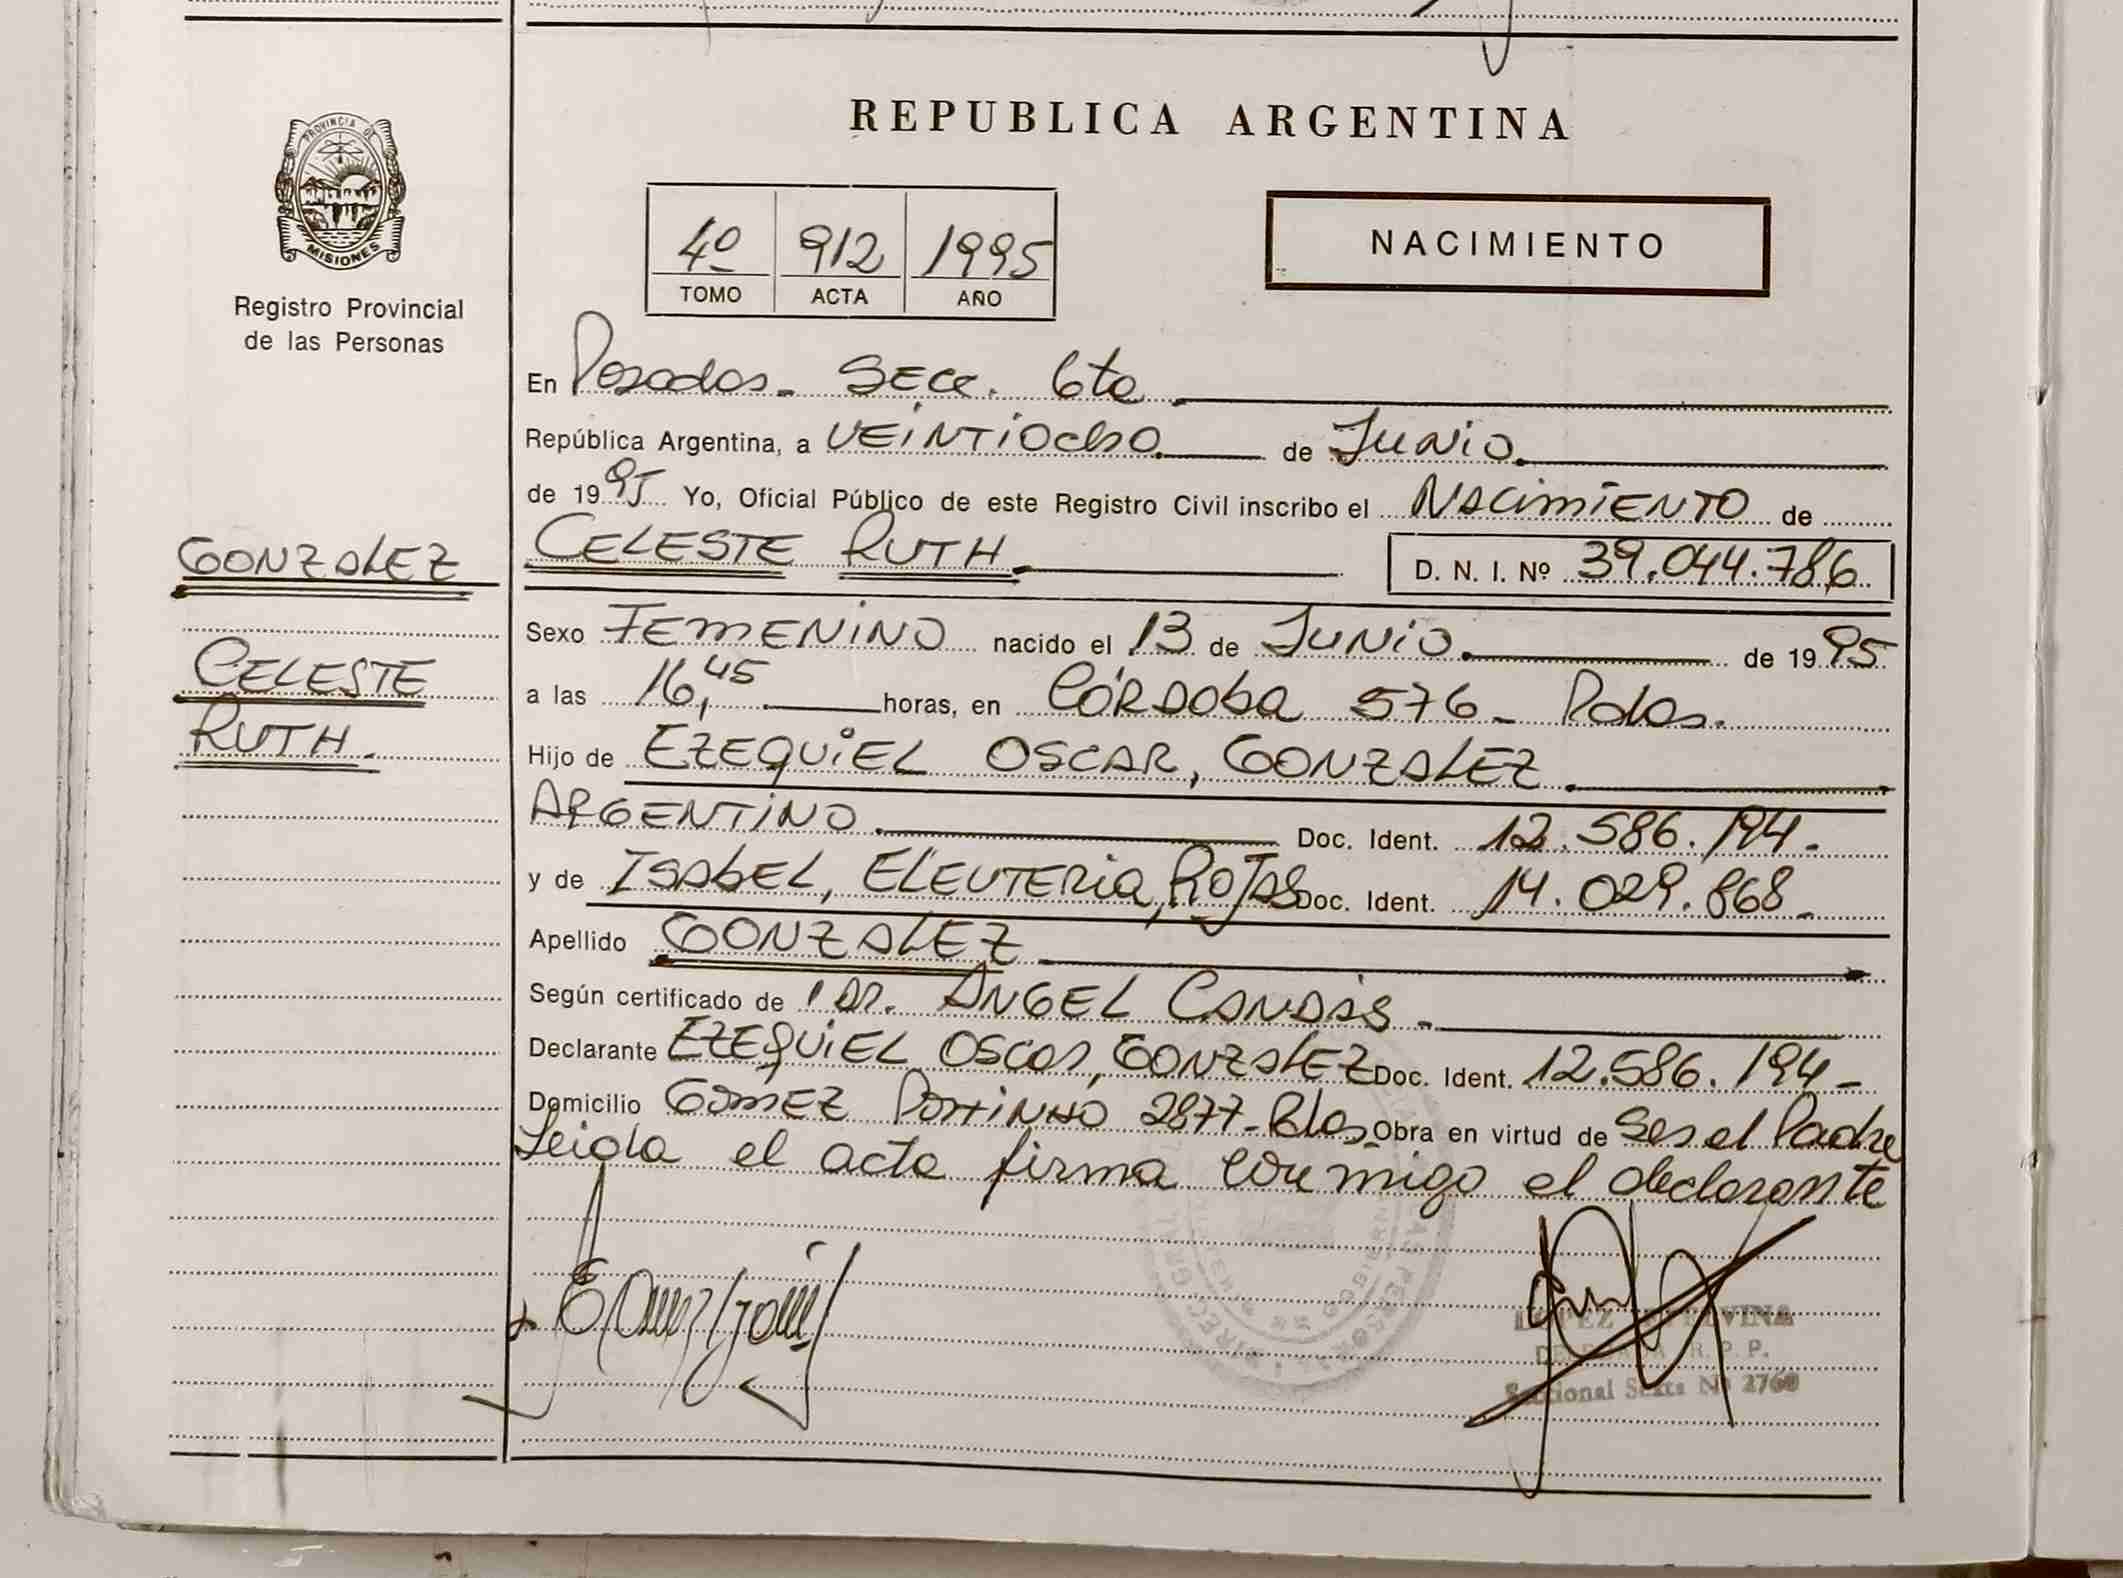 REPUBLICA ARGENTINA
PROVINCIA DE
MISIONES
Registro Provincial
de las Personas
4º 912 1995
TOMO ACTA AÑO
NACIMIENTO
En Posadas. Secc. 6ta
República Argentina, a VEINTIOCHO de JUNIO
de 1995 Yo, Oficial Público de este Registro Civil inscribo el NACIMIENTO de
GONZALEZ
CELESTE RUTH D. N. I. Nº 39.044.786
Sexo FEMENINO nacido el 13 de JUNIO de 1995
CELESTE
RUTH.
a las 16,45 horas, en CÓRDOBA 576 - Pdas.
Hijo de EZEQUIEL OSCAR, GONZALEZ
ARGENTINO Doc. Ident. 12.586.194.-
y de ISABEL, ELEUTERIA, ROJAS Doc. Ident. 14.029.868.-
Apellido GONZALEZ
Según certificado de DR. ANGEL CANDÁS.-
Declarante EZEQUIEL OSCAR, GONZALEZ Doc. Ident. 12.586.194-
Domicilio GOMEZ PORTINHO 2877- Pdas. Obra en virtud de Ser el Padre
Leida el acta firma conmigo el declarante
LOPEZ
R. P. P.
Seccional Sexta Nº 2760